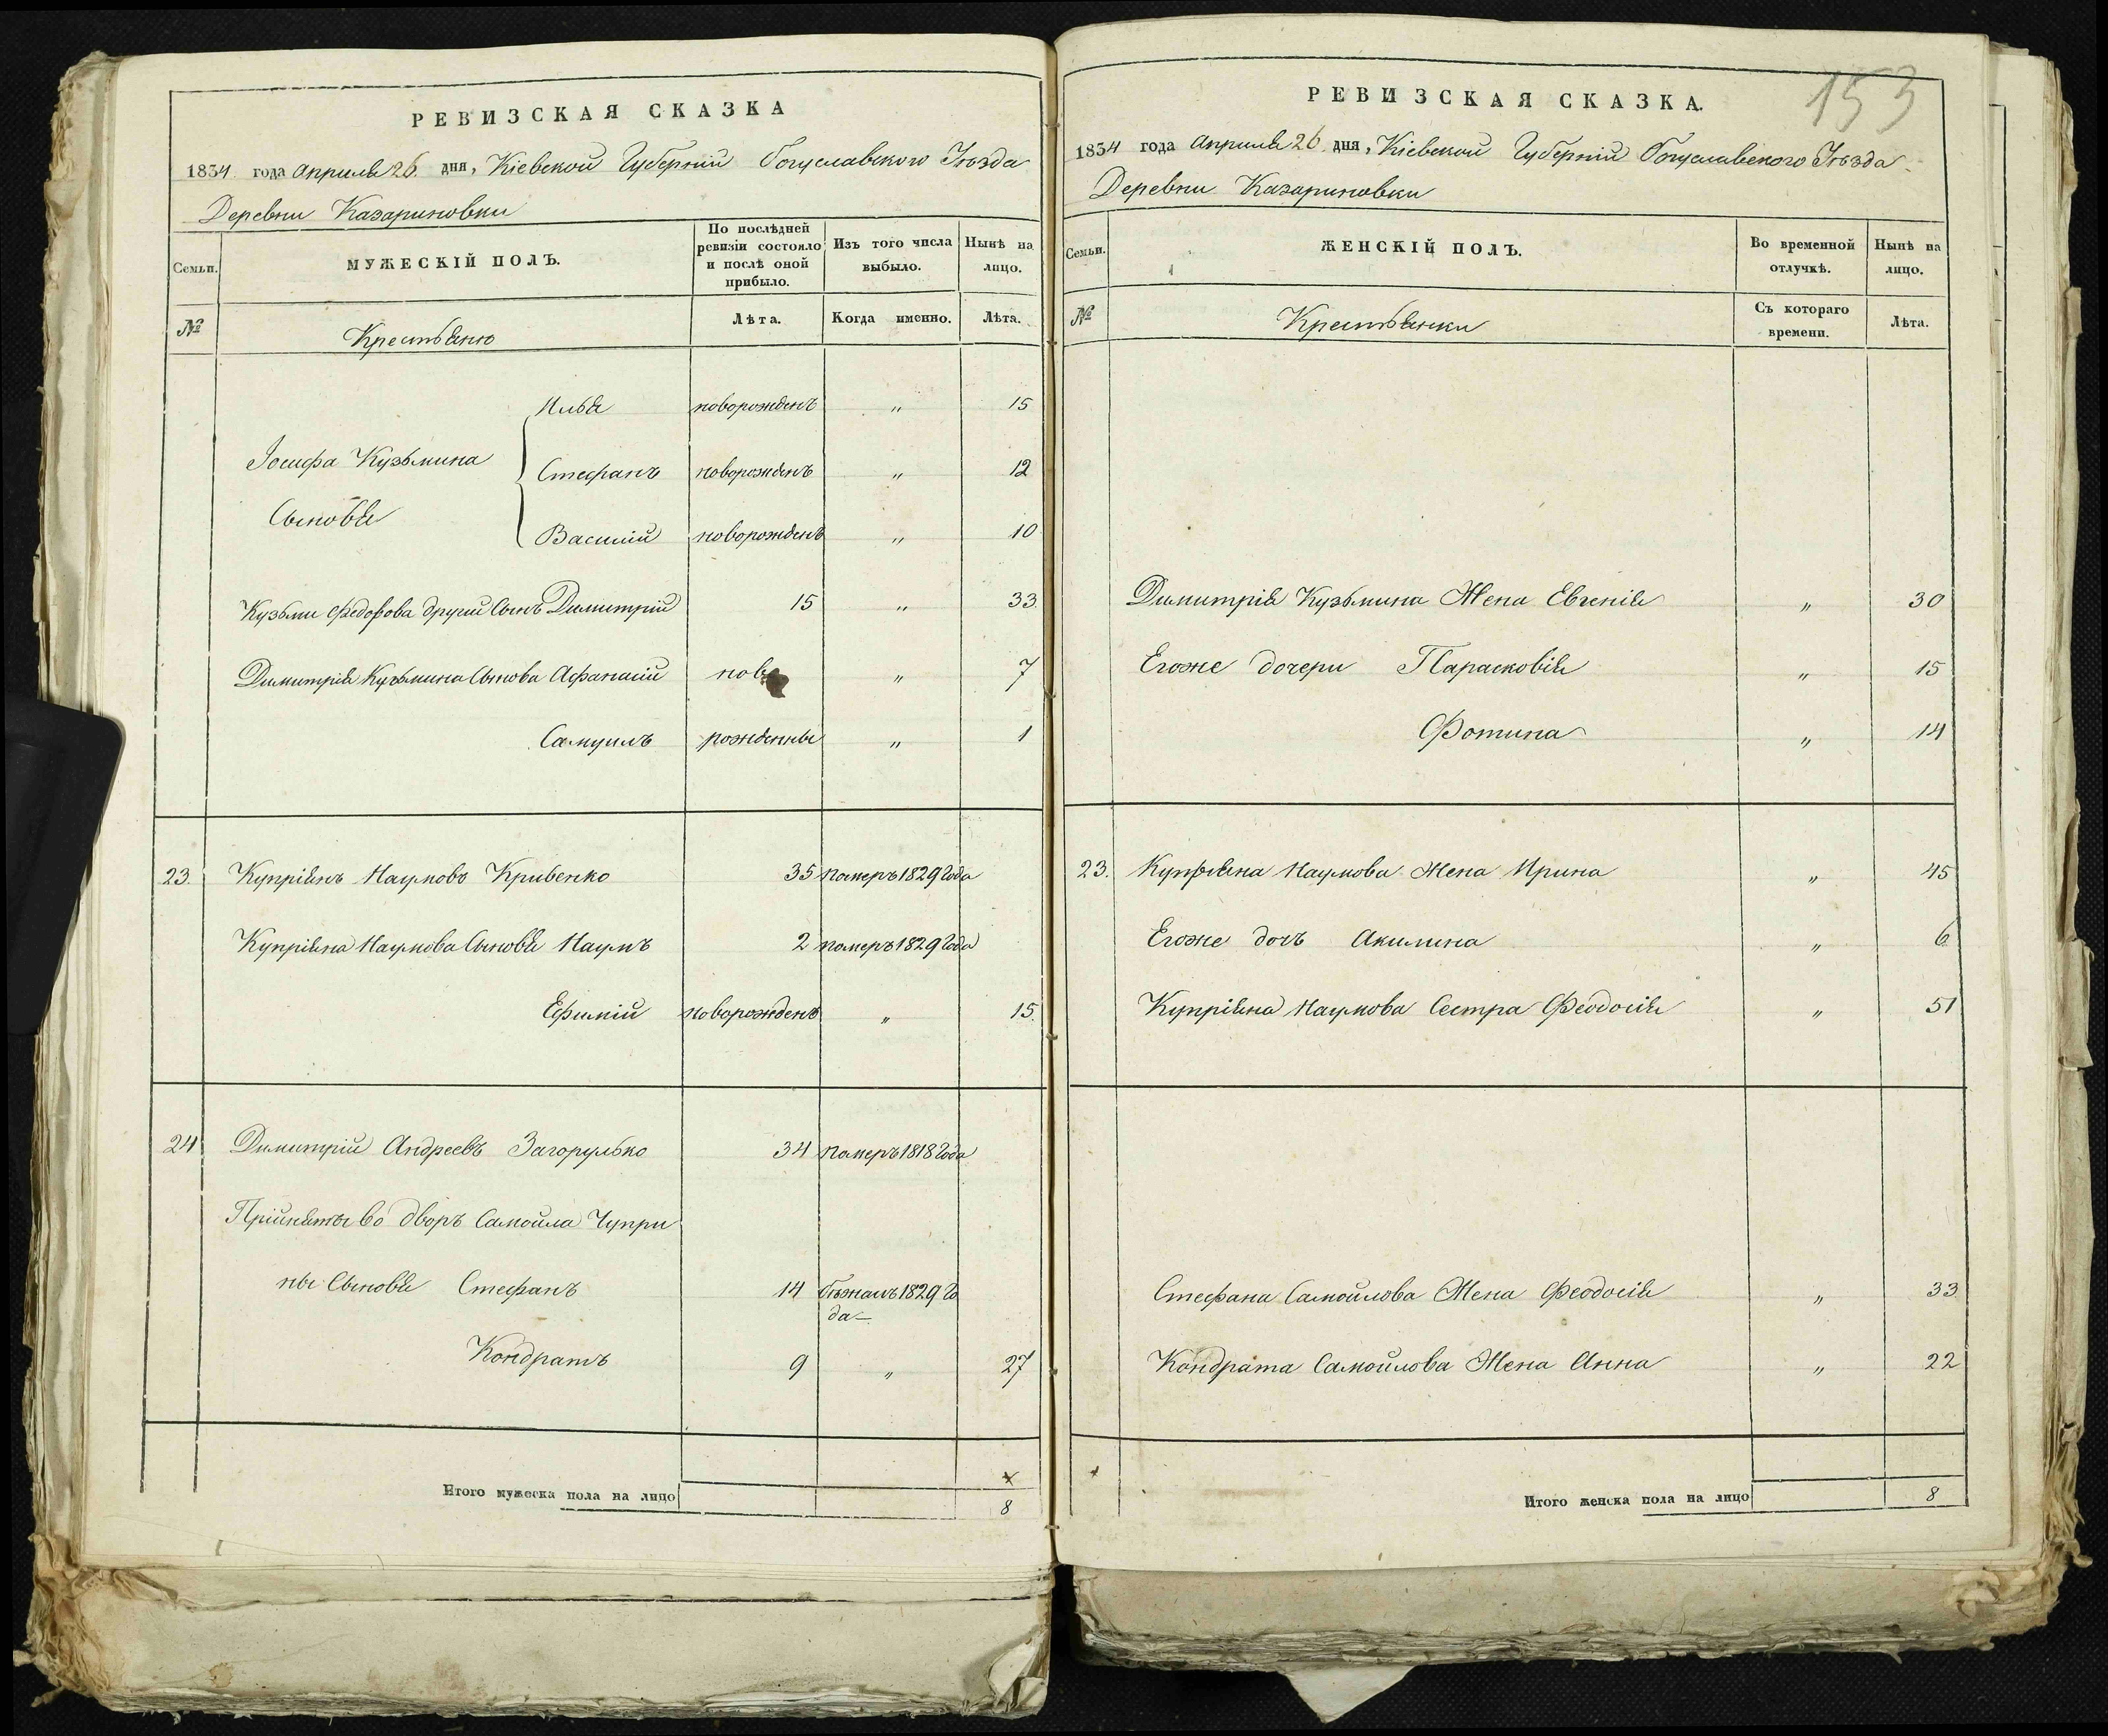 РЕВИЗСКАЯ СКАЗКА
1834 года Апреля 26. дня, Кіевской Губерніи Богуславского Уѣзда
Деревни Казариновки
Семьи.
МУЖЕСКІЙ ПОЛЪ.
По послѣдней ревизіи состояло и послѣ оной прибыло.
Изъ того числа выбыло.
Нынѣ на лицо.
№
Крестьяне
Лѣта.
Когда именно.
Лѣта.
Илья новорожденъ " 15
Іосифа Кузьмина
Стефанъ новорожденъ " 12
Сыновья
Василій новорожденъ " 10
Кузьми Федорова другий Сынъ Димитрій 15 " 33
Димитрія Кузьмина Сынова Афанасій ново " 7
Самуилъ рожденны " 1
23. Купріянъ Наумовъ Кривенко 35 померъ 1829 Года
Купріяна Наумова Сыновья Наумъ 2 померъ 1829 Года
Ефимій новорожденъ " 15.
24 Димитрій Андреевъ Загорулько 34 померъ 1818 Года
Пріиняты во дворъ Самойла Чупри
ны Сыновья Стефанъ 14 бѣжалъ 1829 Го
да
Кондратъ 9 " 27
Итого мужеска пола на лицо
8
153
РЕВИЗСКАЯ СКАЗКА.
1834 года Апреля 26 дня, Кіевской Губерніи Богуславского Уѣзда
Деревни Казариновки
Семьи.
ЖЕНСКІЙ ПОЛЪ.
Во временной отлучкѣ.
Нынѣ на лицо.
№
Крестьянки
Съ котораго времени.
Лѣта.
Димитрія Кузьмина Жена Евгенія " 30
Егоже дочери Парасковія " 15
Фотина " 14
23. Купріяна Наумова Жена Ирина " 45
Егоже дочъ Акилина " 6
Купріяна Наумова Сестра Феодосія " 51
Стефана Самойлова Жена Феодосія " 33
Кондрата Самойлова Жена Анна " 22
Итого женска пола на лицо 8